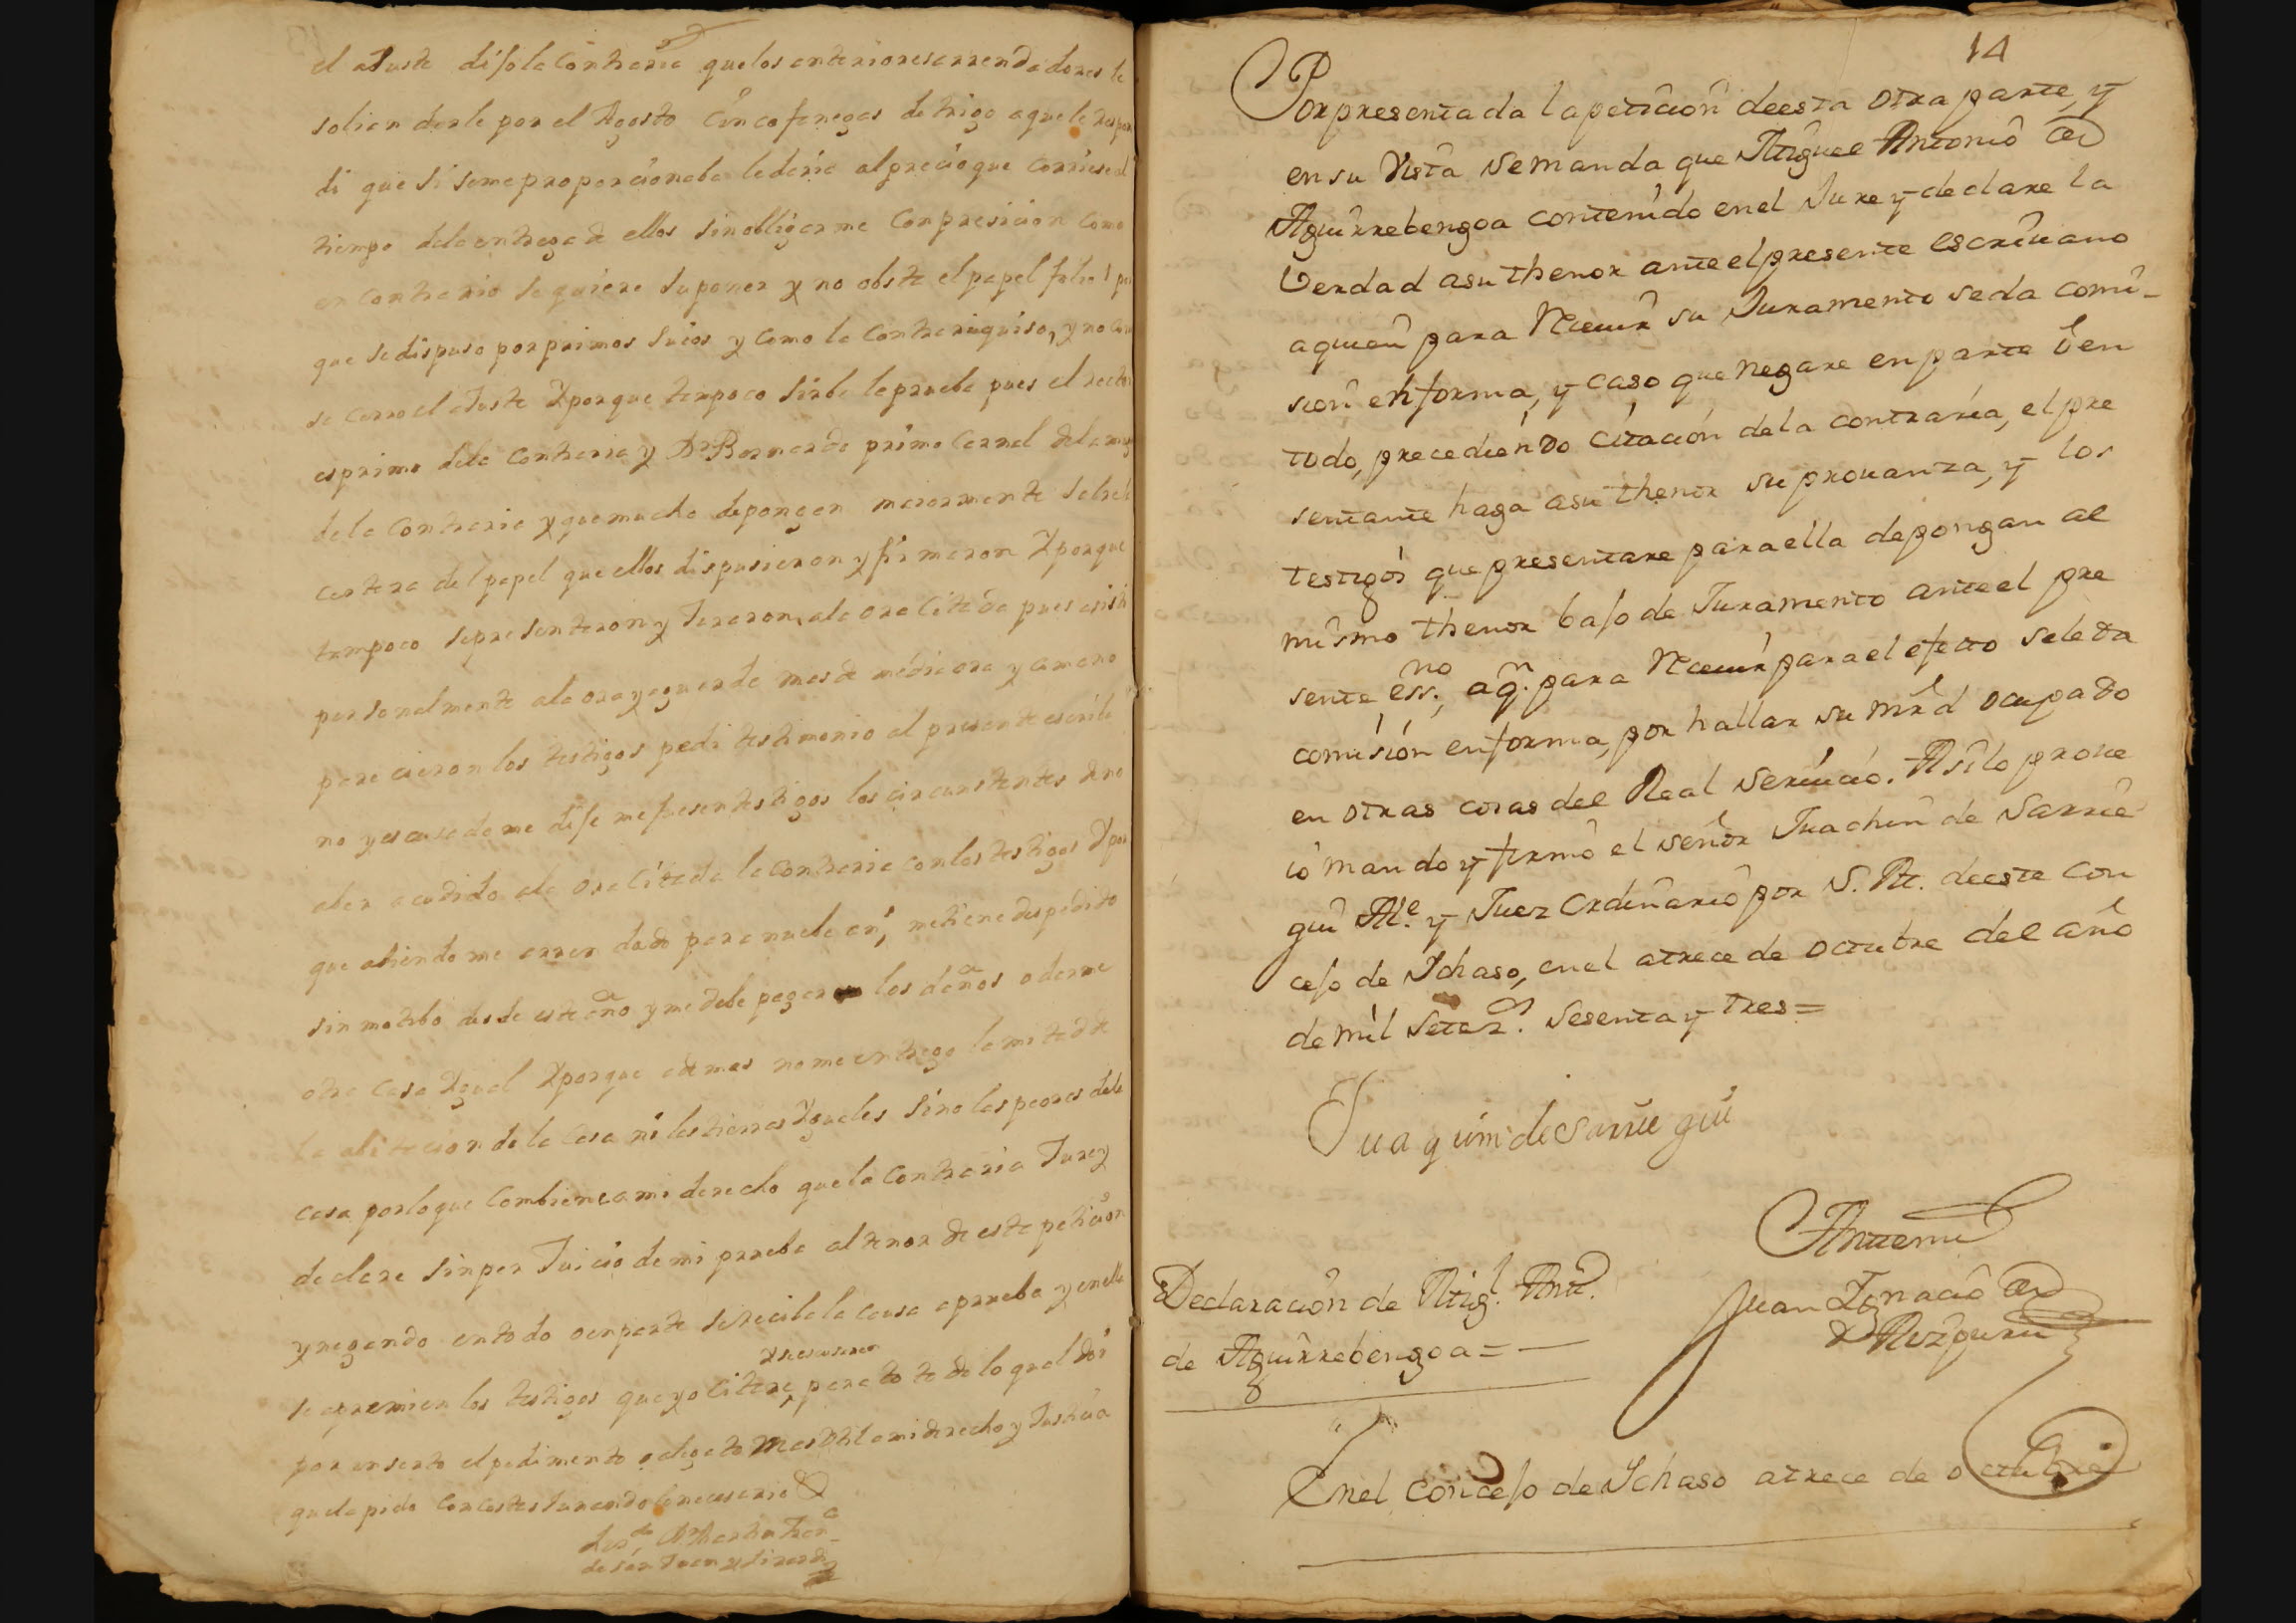 el aJuste dijo la Contraria que los anteriores arrendadores le
solian darle por el Agosto Cinco fanegas de trigo a que le respon
di que si se me proporcionaba le daria al precio que corriese al
tiempo de la entrega de ellos sin obligarme Con presicion Como
en Contrario se quiere suponer y no obsta el papel folio 1 por
que se dispuso por primos suios y Como la Contraria quiso, y no Con
se cerro el aJuste Y porque tampoco sirbe la prueba pues el rector
es primo de la Contraria y Dn Bernardo primo Carnal de la mug
de la Contraria y que mucho depongan maiormente sobre la
certeza del papel que ellos dispusieron y firmaron Y porque
tampoco se presentaron y Juraron, a la ora Citada pues asisti
personalmente a la ora y aguarde mas de media ora y como no
parecieron los testigos pedi testimonio al presente escriba
no y escusadome dije me fuesen testigos los circunstantes de no
aber acudido a la ora Citada la Contraria con los testigos Y por
que abiendome arrendado para nuebe an,s me tiene despedido
sin motibo desde este año y me debe pagar los daños o darme
otra Casa Ygual Y porque ademas no me entrego la mitad de
la abitacion de la Casa ni las tierras Yguales sino las peores de la
Casa por lo que Combiene a mi derecho que la Contraria Jure y
declare sin perJuicio de mi prueba al tenor de esta peticion
y negando en todo o en parte se reciba la Causa a prueba y en ella
se apremien los testigos que yo Citare,
para to todo lo qual doi
por inserto el pedimento o alegato mas Util a mi derecho y Justicia
que la pido Con Costas Jurando lo necesario &
14
Por presentada la petición de esta otra parte, y
en su Vista se manda que Miguel Antonio de
Aguirrebengoa contenido en el Jure y declare la
Verdad a su thenor ante el presente escriuano
a quien para Reciuir su Juramento se da comi-
sion en forma, y caso que negare en parte ò en
todo, precediendo citación de la contraria, el pre
sentante haga a su thenor su prouanza, y los
testigos que presentare para ella depongan al
mismo thenor bajo de Juramento ante el pre
sente ess.no, a q.n para Reciuir para el efecto se le da
comisión en forma, por hallar su mrd ocupado
en otras cosas del Real Seruicio. Asi lo proue
io mando y firmò el señor Juachin de Sarrie
gui Al.e y Juez Ordinario por S. M. de este Con
cejo de Ichaso, en el a trece de octubre del año
de mil setez.s sesenta y tres=
Juaquim de Sarrie gui
Antemi
Juan Ignacio de
Declaración de Mig.l Ant.o
de Aguirrebengoa=
En el concejo de Ichaso a trece de octubre